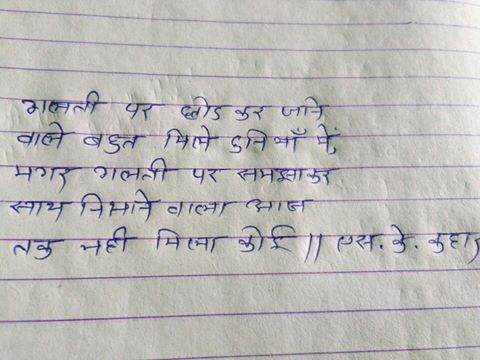 गलती पर छोड कर जाने
वाले बहुत मिले दुनियाँ में,
मगर गलती पर समझाकर
साथ निभाने वाला आज
तक नही मिला कोई || एस. के.